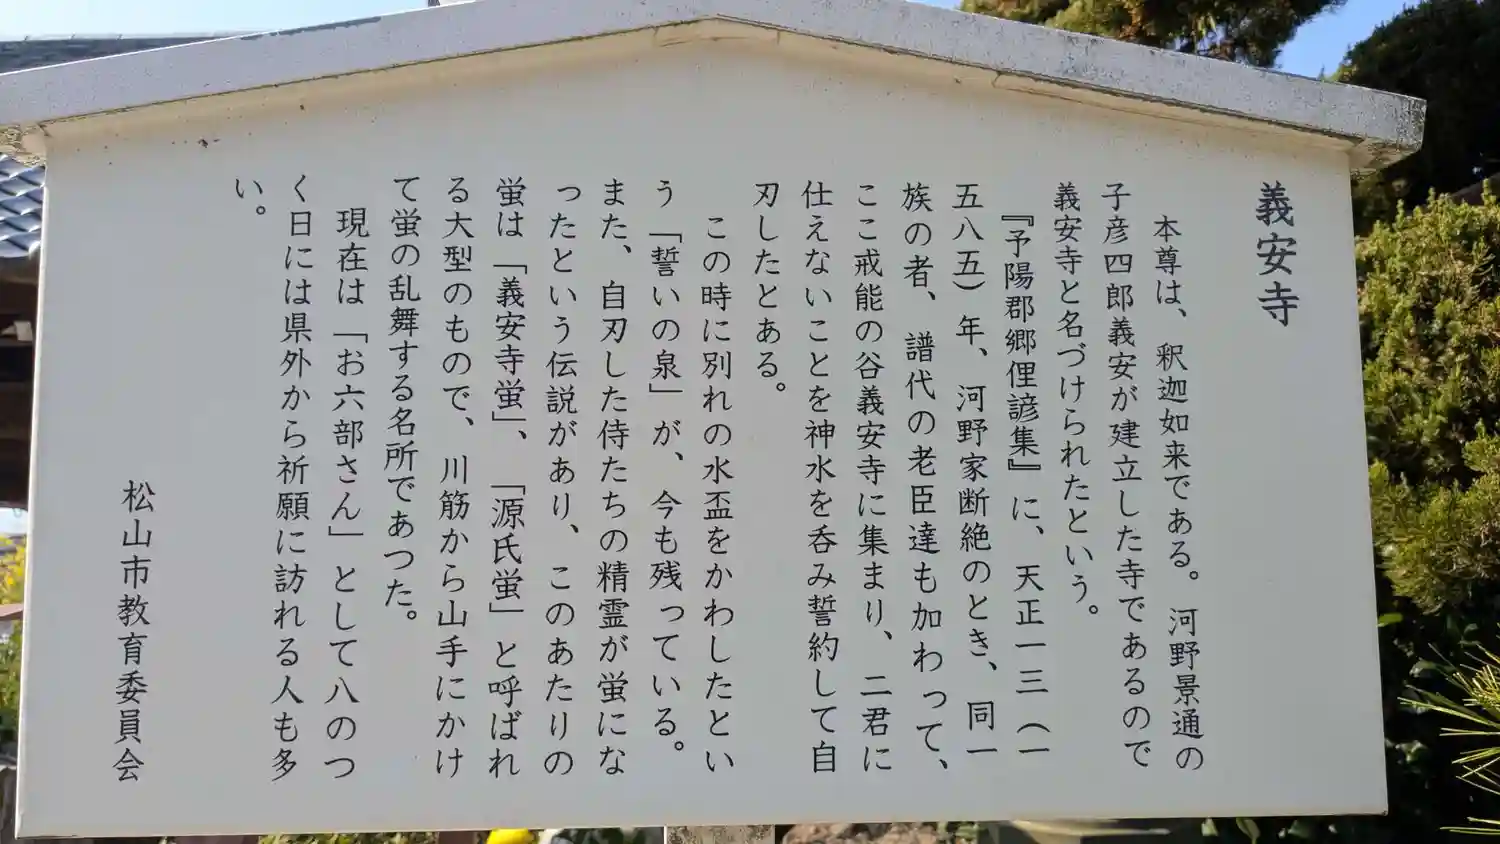 義安寺
本尊は、釈迦如来である。河野景通の
子彦四郎義安が建立した寺であるので
義安寺と名づけられたという。
『予陽郡郷俚諺集』に、天正一三（一
五八五）年、河野家断絶のとき、同一
族の者、譜代の老臣達も加わって、
ここ戒能の谷義安寺に集まり、二君に
仕えないことを神水を呑み誓約して自
刃したとある。
この時に別れの水盃をかわしたとい
う「誓いの泉」が、今も残っている。
また、自刃した侍たちの精霊が蛍にな
ったという伝説があり、このあたりの
蛍は「義安寺蛍」、「源氏蛍」と呼ばれ
る大型のもので、川筋から山手にかけ
て蛍の乱舞する名所であつた。
現在は「お六部さん」として八のつ
く日には県外から祈願に訪れる人も多
い。
松山市教育委員会